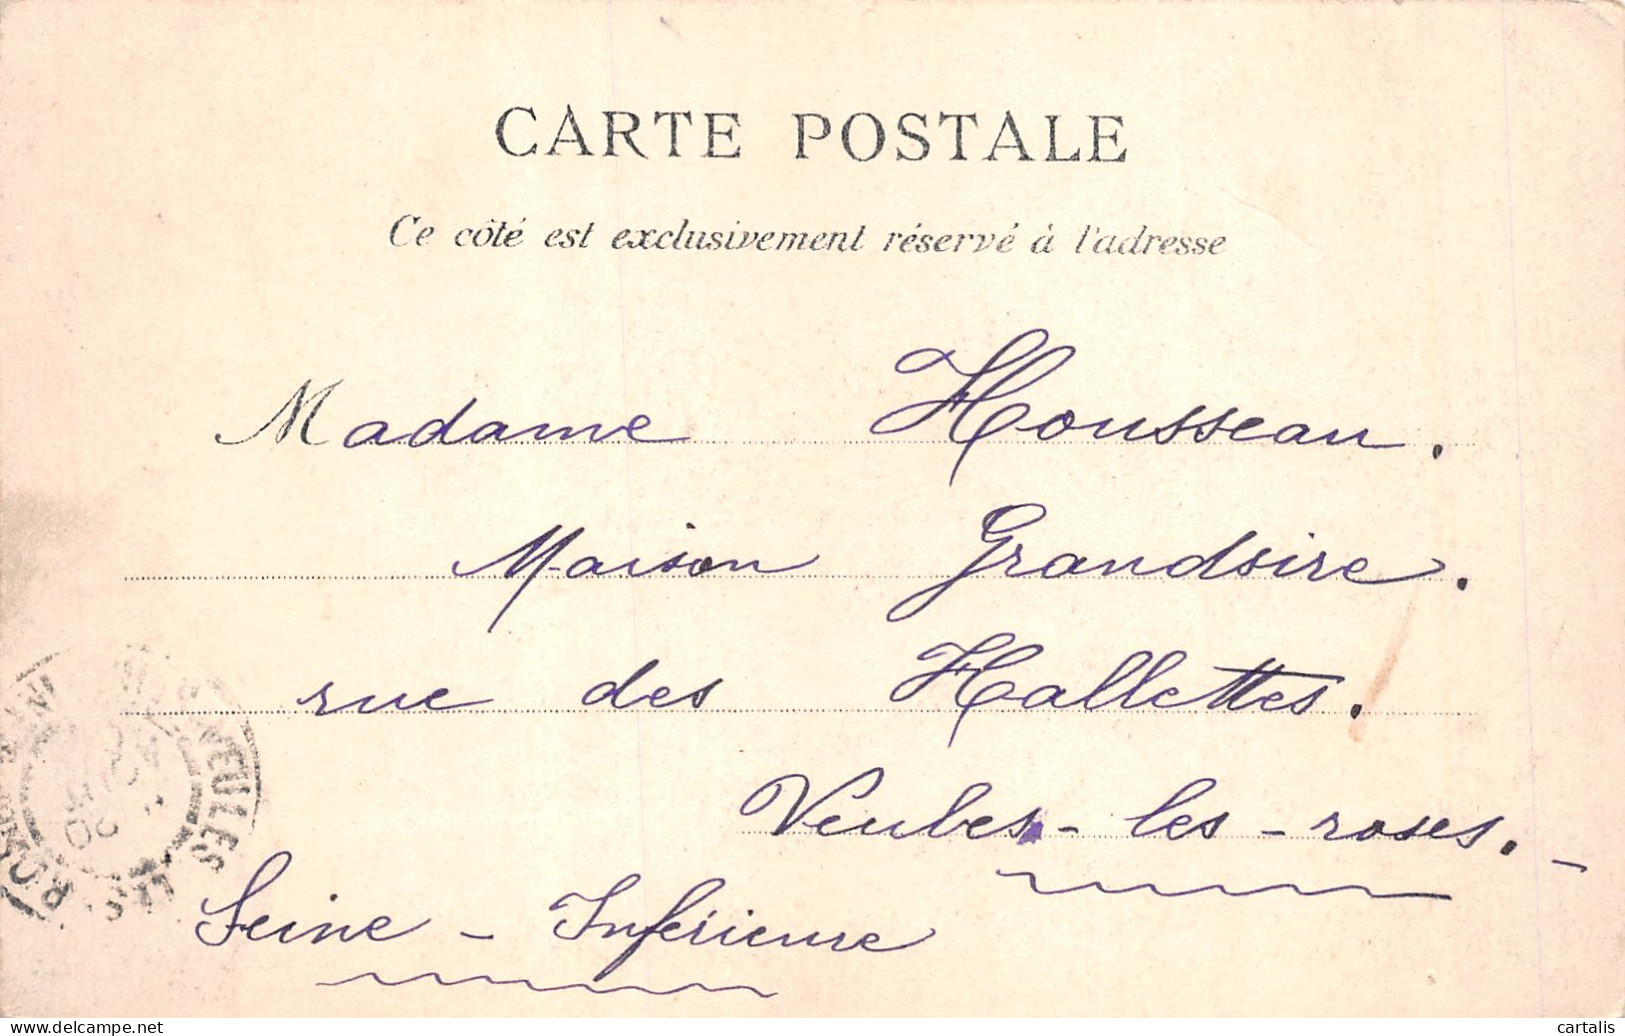 CARTE POSTALE
Ce côté est exclusivement réservé à l'adresse
Madame Housseau.
Maison Grandsire.
rue des Hallettes.
Veules-les-roses.-
Seine-Inférieure
VEULES LES ROSES
20
cartalis
www.delcampe.net